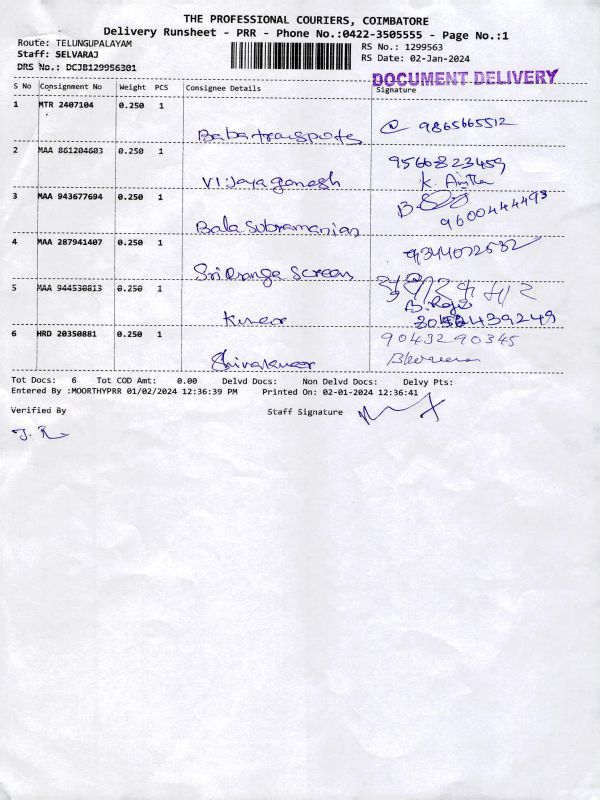 THE PROFESSIONAL COURIERS, COIMBATORE
Delivery Runsheet - PRR - Phone No.:0422-3505555 - Page No.:1
Route: TELUNGUPALAYAM
RS No.: 1299563
Staff: SELVARAJ
RS Date: 02-Jan-2024
DRS No.: DCJB129956301
DOCUMENT DELIVERY
S No Consignment No Weight PCS Consignee Details Signature
1 MTR 2407104 0.250 1
Baba transports 9865665512
2 MAA 861204603 0.250 1
Vijayaganesh 9566823459
K. Anitha
3 MAA 943677694 0.250 1
Bala Subramanian 9600444493
4 MAA 287941407 0.250 1
Sri Ranga Screens 9344072632
5 MAA 944530813 0.250 1
Kumar
6 HRD 20350881 0.250 1
Shivakumar 9043290345
Tot Docs: 6 Tot COD Amt: 0.00 Delvd Docs: Non Delvd Docs: Delvy Pts:
Entered By :MOORTHYPRR 01/02/2024 12:36:39 PM Printed On: 02-01-2024 12:36:41
Verified By
Staff Signature